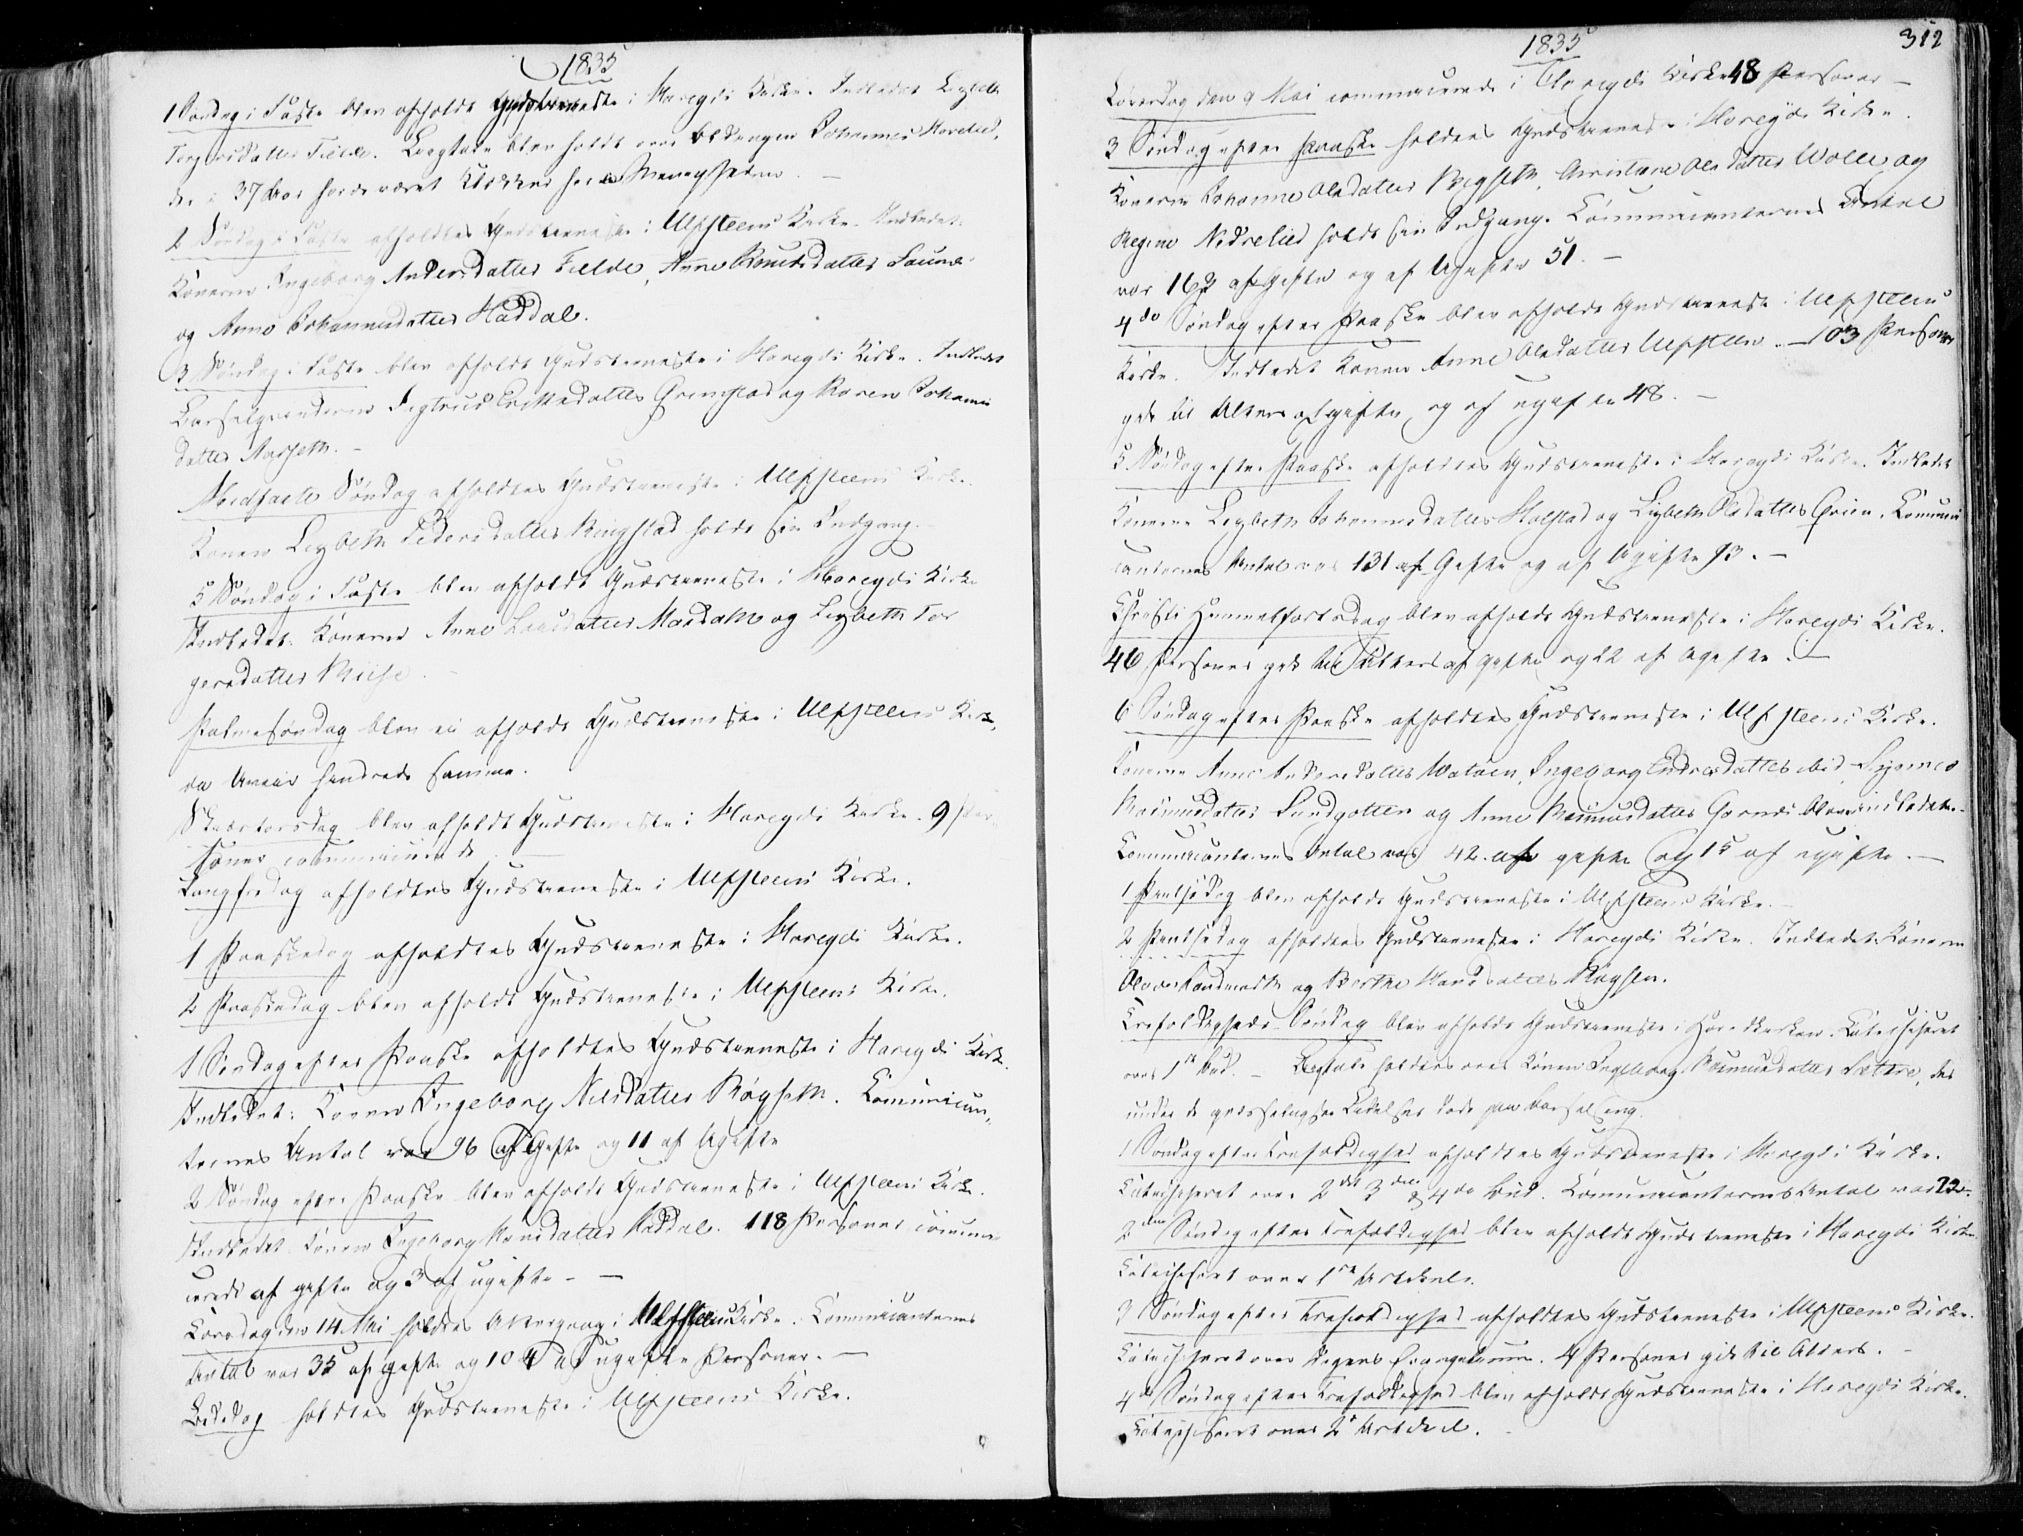 1835
1 Søndag i Faste blev afholdt Gudstieneste i Hareyds Kirke. Indledet Lisbeth
Torgersdatter Fielde. Liigtale blev holdt over Oldingen Johannes Hovelied,
der i 37 Aar havde været Klokker her i Menigheden. —
2 Søndag i Faste afholdtes Gudstieneste i Ulfsteens Kirke. Indledet:
Konerne Ingeborg Andersdatter Fielde, Anne Knudsdatter Saune
og Anne Johannesdatter Haddal.
3 Søndag i Faste blev afholdt Gudstieneste i Hareyds Kirke. Indledet
Barselqvinderne Sigtrud Eriksdatter Grimstad og Karen Johannes
datter Aarseth. —
Midfaste Søndag afholdtes Gudstieneste i Ulfsteens Kirke.
Konen Lisbeth Pedersdatter Ringstad holdt sin Indgang.
5 Søndag i Faste blev afholdt Gudstieneste i Hareyds Kirke
Indledet: Konerne Anne Larsdatter Mardahl og Lisbeth Tor
gersdatter Riise. —
Palmesøndag blev ei afholdt Gudstieneste i Ulfsteens Kirke,
da Uveir hindrede samme.
Skiærtorsdag blev afholdt Gudstieneste i Hareyds Kirke. 9 Per
soner communicerede —
Langfredag afholdtes Gudstieneste i Ulfsteens Kirke.
1 Paaskedag afholdtes Gudstieneste i Hareyds Kirke.
2 Paaskedag blev afholdt Gudstieneste i Ulfsteens Kirke.
1 Søndag efter Paaske afholdtes Gudstieneste i Hareyds Kirke.
Indledet: Konen Ingeborg Nilsdatter Røyseth. Communican,
ternes Antal var 96 af Gifte og 11 af Ugifte
2 Søndag efter Paaske blev afholdt Gudstieneste i Ulfsteens Kirke.
Indledet Konen Ingeborg Hansdatter Haddal. 118 Personer commu
nicerede af gifte og 3 af ugifte. —
Løverdag den 14 Mai holdtes Altergang i Ulfsteens Kirke. Communicanternes
Antal var 35 af gifte og 104 af ugifte Personer. —
Bededag holdtes Gudstieneste i Ulfsteens Kirke.
1835
312
Løverdag den 9 Mai communicerede i Hareyds Kirke 48 Personer —
3 Søndag efter Paaske holdtes Gudstieneste i Hareyds Kirke.
Konerne Johanne Olsdatter Røyseth, Christiane Olsdatter Wolle og
Regine Nedrelied holdt sin Indgang. Communicanternes Antal
var 162 af Gifte og af Ugifte 51. —
4de Søndag efter Paaske blev afholdt Gudstieneste i Ulfsteens
Kirke. Indledet Konen Anne Olsdatter Ulfsteen. — 103 Personer
gik til Alters af gifte og af ugifte 48. —
5 Søndag efter Paaske afholdtes Gudstieneste i Hareyds Kirke. Indledet
Konerne Lisbeth Johannesdatter Holstad og Lisbeth Olsdatter Qvien. Communi
canternes Antal var 131 af Gifte og af Ugifte 93. —
Christi Himmelfartsdag blev afholdt Gudstieneste i Hareyds Kirke.
46 Personer gik til Alters af gifte og 22 af Ugifte. —
6 Søndag efter Paaske afholdtes Gudstieneste i Ulfsteens Kirke.
Konerne Anne Andersdatter Watøen, Ingeborg Endresdatter ibid,
Rasmusdatter Sundgotten og Anne Rasmusdatter Gornæs bleve indledede.
Communicanternes Antal var 42 af gifte og 15 af ugifte. —
1 Pintsedag blev afholdt Gudstieneste i Ulfsteens Kirke. —
2 Pintsedag afholdtes Gudstieneste i Hareyds Kirke. Indledet: Konerne
og Berthe Hansdatter Røyseth.
Trefoldigheds-Søndag blev afholdt Gudstieneste i Hovedkirken. Catechiseret
over 1te Bud. — Liigtale holdtes over Konen Ingeborg Rasmusdatter Sættre, der
under de Lidelser døde paa Barselseng.
1 Søndag efter Trefoldighed afholdtes Gudstieneste i Hareyds Kirke.
Catechiseret over 2det 3die & 4de Bud. Communicanternes Antal var 72.
2den Søndag efter Trefoldighed blev afholdt Gudstieneste i Hareyds Kirke.
Catechiseret over 1ste Artikel.
3 Søndag efter Trefoldighed afholdtes Gudstieneste i Ulfsteens Kirke.
Catechiseret over Dagens Evangelium. 4 Personer gik til Alters. —
4de Søndag efter Trefoldighed blev afholdt Gudstieneste i Hareyds Kirke.
Catechiseret over 2. Artikel.